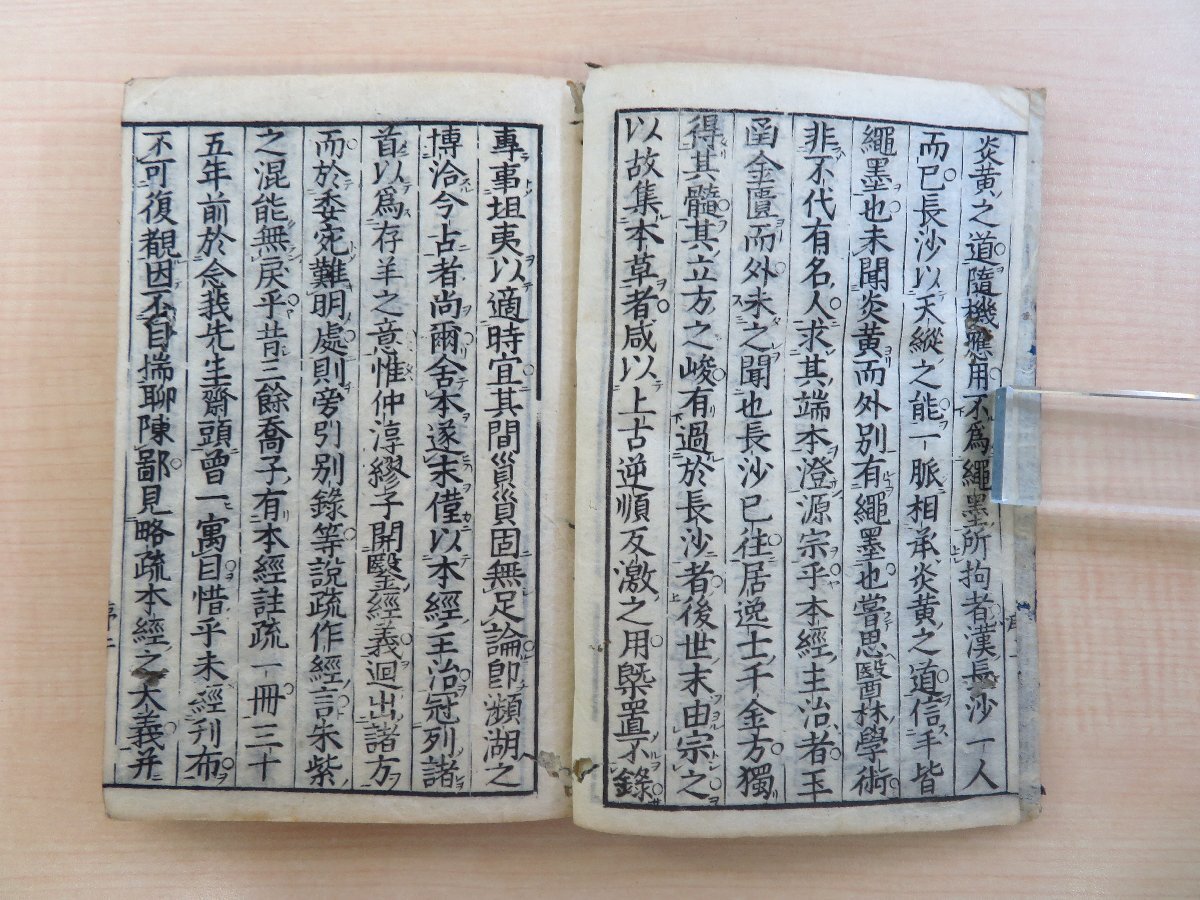 炎黃之道隨機應用不爲繩墨所拘者漢長沙一人
而已長沙以天縱之能一脈相承炎黃之道信手皆
繩墨也未聞炎黃而外別有繩墨也嘗思醫林學術
非不代有名人求其端本澄源宗乎本經主治者玉
函金匱而外未之聞也長沙已往居逸士千金方獨
得其髓其立方之峻有過於長沙者後世末由宗之
以故集本草者咸以上古逆順反激之用槩置不錄
專事坦夷以適時宜其間貿貿固無足論卽瀕湖之
博洽今古者尚爾舍本遂末僅以本經主治冠列諸
首以爲存羊之意惟仲淳繆子開醫經義迴出諸方
而於委宛難明處則旁引別錄等說疏作經言朱紫
之混能無戾乎昔三餘喬子有本經註疏一冊三十
五年前於念莪先生齋頭曾一寓目惜乎未經刊布
不可復覩因不自揣聊陳鄙見略疏本經之大義并
序二